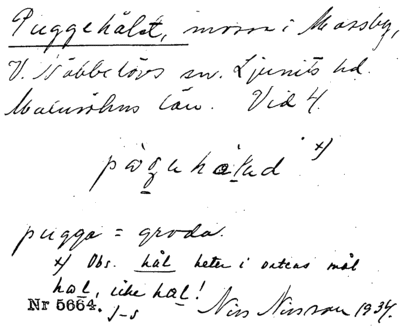 Puggehålet, mosse i Mossby,
V. Nöbbelövs sn. Ljunits hd.
Malmöhus län. Vid 4.
x)
pugga = groda.
x) Obs. hål heter i ortens mål
hæl, icke hal!
Nr 5664. J-s Nils Nilsson 1934.